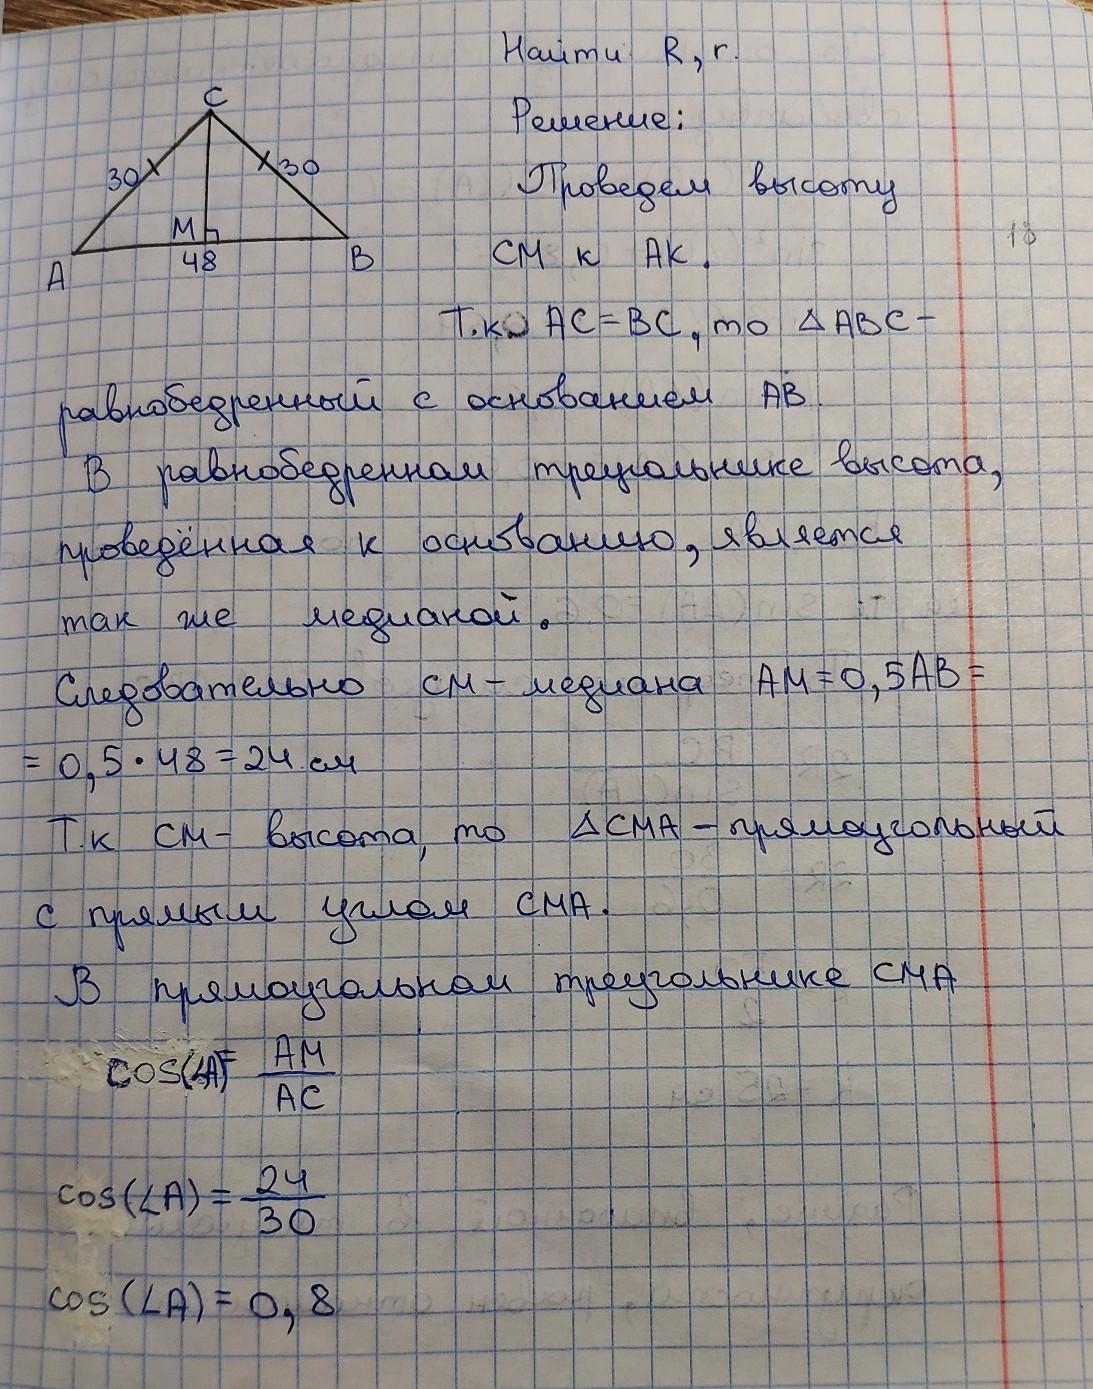 Найти R, r.
Решение:
C
30
30
M
A
48
B
Проведем высоту
CM к AK.
Т.к. AC=BC, то △ABC-
равнобедренный с основанием AB.
В равнобедренном треугольнике высота,
проведённая к основанию, является
так же медианой.
Следовательно CM- медиана AM=0,5AB=
=0,5·48=24 см
Т.к CM- высота, то △CMA-прямоугольный
с прямым углом CMA.
В прямоугольном треугольнике CMA
cos(∠A)= AM/AC
cos(∠A)= 24/30
cos(∠A)=0,8